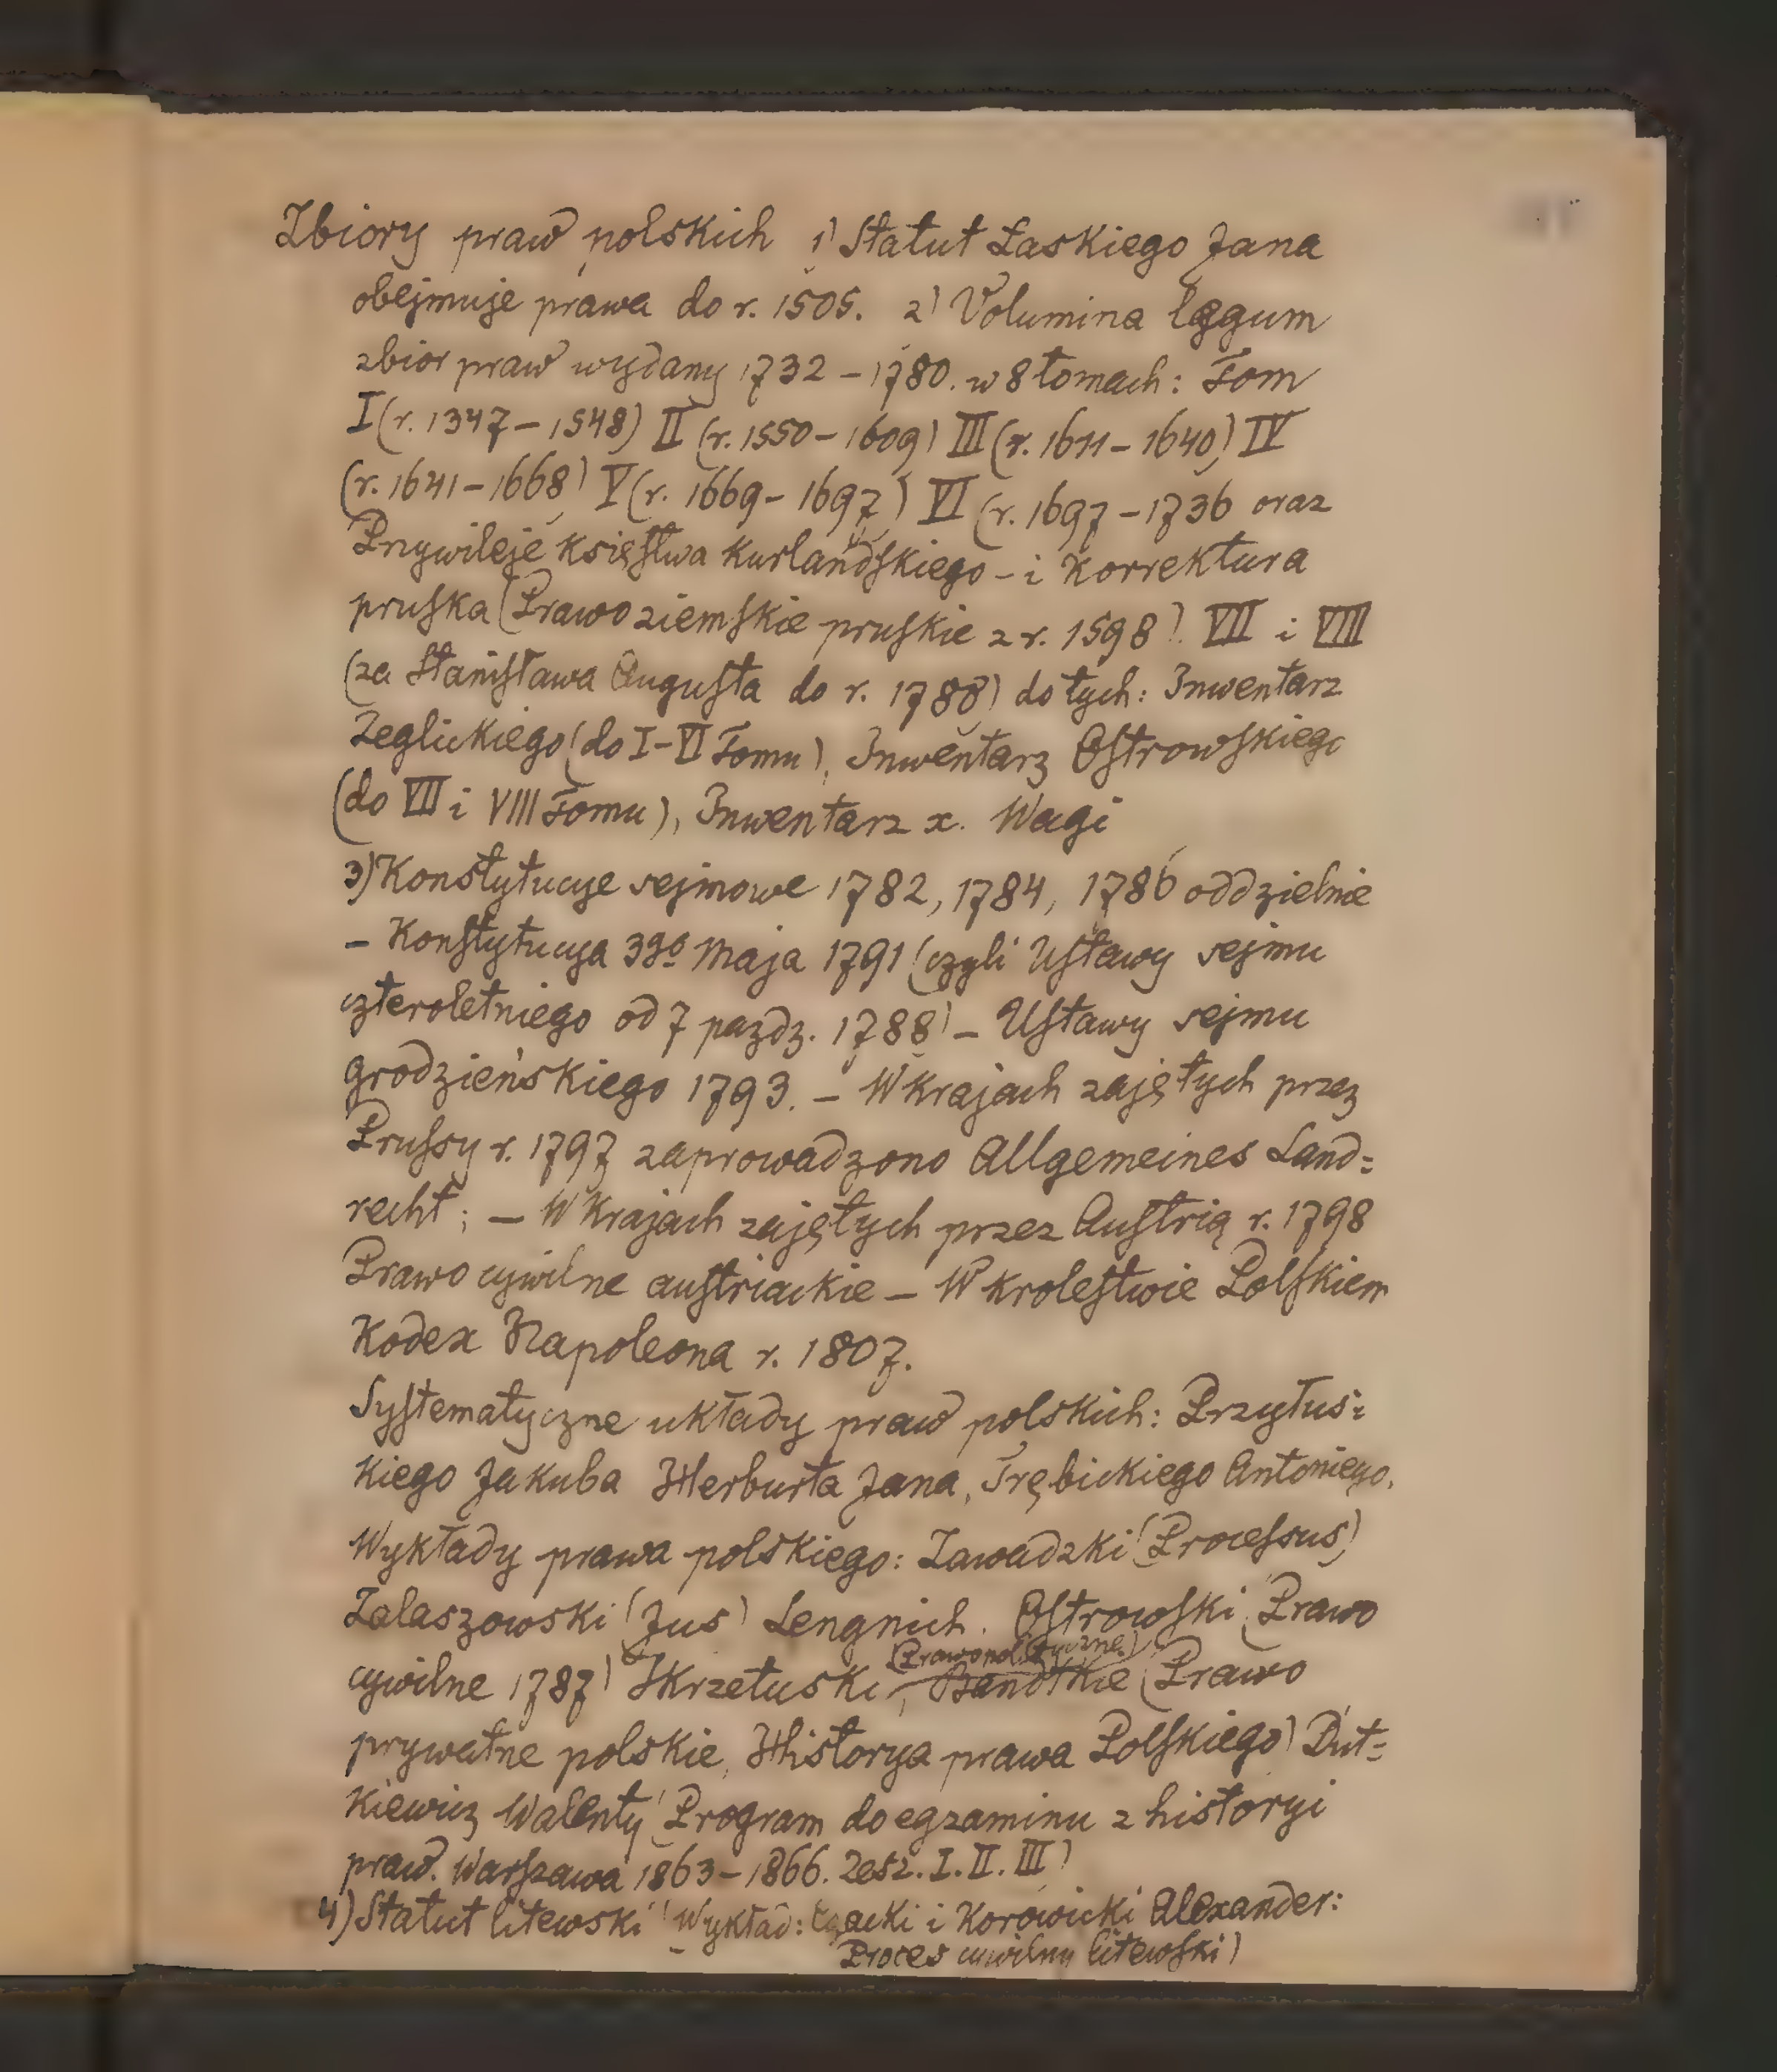 Zbiory praw polskich 1) Statut Laskiego Jana
obejmuje prawa do r. 1505. 2) Volumina legum
zbior praw wydany 1732 – 1780. w 8 tomach: Tom
I (r. 1347 – 1548) II (r. 1550 – 1609) III (r. 1611 – 1640) IV
(r. 1641 – 1668) V (r. 1669 – 1697) VI (r. 1697 – 1736 oraz
Przywileje księstwa Kurlandskiego – i Korrektura
pruska (Prawo ziemskie pruskie z r. 1598). VII i VIII
(za Stanisława Augusta do r. 1780) do tych: Inwentarz
Zeglickiego (do I – VI Tomu), Inwentarz Ostrowskiego
(do VII i VIII Tomu), Inwentarz x. Wagi
3) Konstytucye sejmowe 1782, 1784, 1786 oddzielnie
– Konstytucya 3go Maja 1791 (czyli Ustawy sejmu
czteroletniego od 7 pazdz. 1788) – Ustawy sejmu
grodzieńskiego 1793. – W krajach zajętych przez
Prussy r. 1797 zaprowadzono Allgemeines Land=
recht; – W Krajach zajętych przez Austrią r. 1798
Prawo cywilne austriackie – W krolestwie Polskiem
Kodex Napoleona r. 1807.
Systematyczne układy praw polskich: Przyłus=
kiego Jakuba Herburta Jana, Trębickiego Antoniego.
Wykłady prawa polskiego: Zawadzki (Processus)
Zalaszowski (Jus) Lengnich. Ostrowski (Prawo
(Prawo polityczne)
cywilne 1787) Skrzetuski, Bandtkie (Prawo
prywatne polskie, Historya prawa Polskiego) Dut=
kiewicz Walenty (Program do egzaminu z historyi
praw. Warszawa 1863 – 1866. Zesz. I. II. III)
4) Statut litewski (Wykład: Czacki i Korowicki Alexander:
Proces cywilny litewski)